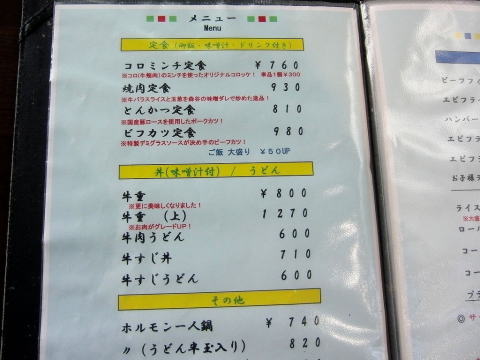 メニュー
Menu
定食(御飯・味噌汁・ドリンク付き)
コロミンチ定食 ¥760
※コロ(牛槐肉)のミンチを使ったオリジナルコロッケ! 単品1個¥300
焼肉定食 930
※牛バラスライスと玉葱を自店の味噌ダレで炒めた逸品!
とんかつ定食 810
※国産豚ロースを使用したポークカツ!
ビフカツ定食 980
※特製デミグラスソースが決め手のビーフカツ!
ご飯 大盛り ¥50UP
丼(味噌汁付) / うどん
牛重 ¥800
※更に美味しくなりました!
牛重 (上) 1270
※お肉がグレードUP!
牛肉うどん 600
牛すじ丼 710
牛すじうどん 600
その他
ホルモン一人鍋 ¥740
〃(うどん半玉入り) 820
ビーフフィ
エビフライ
ハンバー
エビフラ
エビフラ
お子様
ライス
※大盛
ロール
コー
コー
プラ
◎サ